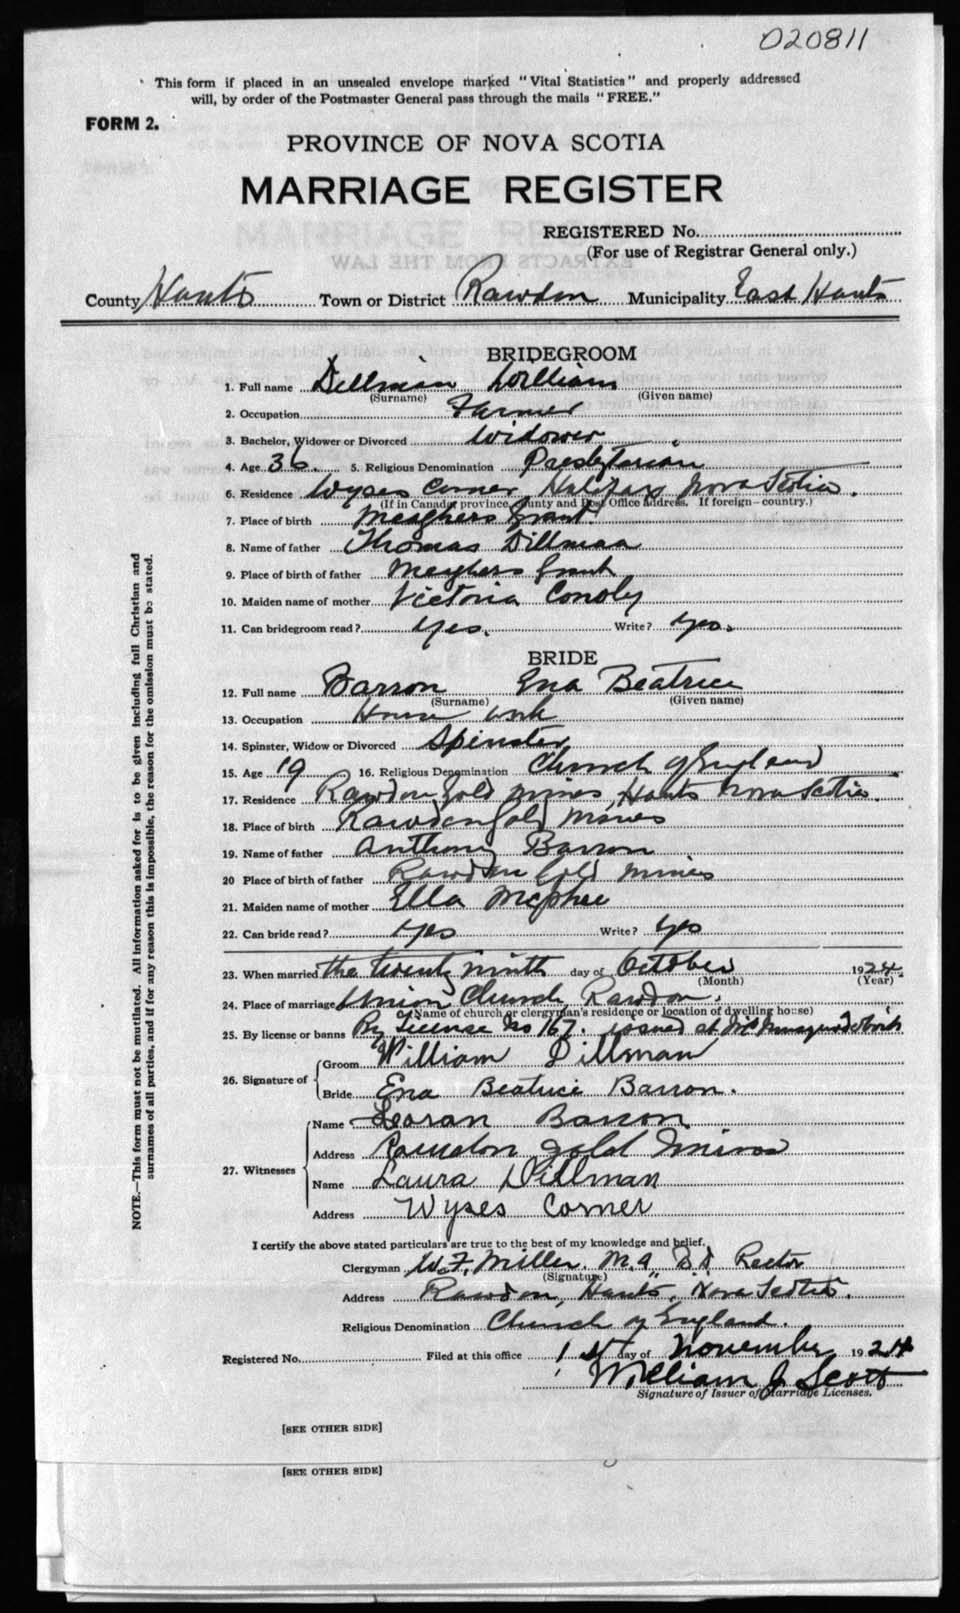 020811
This form if placed in an unsealed envelope marked "Vital Statistics" and properly addressed
will, by order of the Postmaster General pass through the mails "FREE."
FORM 2.
PROVINCE OF NOVA SCOTIA
MARRIAGE REGISTER
REGISTERED No.
(For use of Registrar General only.)
County Hants Town or District Rawdon Municipality East Hants
BRIDEGROOM
1. Full name Dillman William
(Surname) (Given name)
2. Occupation Farmer
3. Bachelor, Widower or Divorced Widower
4. Age 36. 5. Religious Denomination Presbyterian
6. Residence Wyses Corner Halifax Nova Scotia.
(If in Canada, province, county and Post Office address. If foreign—country.)
7. Place of birth Meaghers Grant
8. Name of father Thomas Dillman
9. Place of birth of father Meaghers Grant
10. Maiden name of mother Victoria Conoly
11. Can bridegroom read? Yes. Write? Yes.
BRIDE
12. Full name Barron Ena Beatrice
(Surname) (Given name)
13. Occupation House work
14. Spinster, Widow or Divorced Spinster
15. Age 19 16. Religious Denomination Church of England
17. Residence Rawdon Gold Mines, Hants Nova Scotia.
18. Place of birth Rawdon Gold Mines
19. Name of father Anthony Barron
20 Place of birth of father Rawdon Gold Mines
21. Maiden name of mother Ella McPhee
22. Can bride read? Yes Write? Yes
23. When married the twenty ninth day of October 1924.
(Month) (Year)
24. Place of marriage Union Church, Rawdon.
(Name of church or clergyman's residence or location of dwelling house)
25. By license or banns By License No 167. issued at
26. Signature of Groom William Dillman
Bride Ena Beatrice Barron.
27. Witnesses Name Barron
Address Rawdon gold mines
Name Laura Dillman
Address Wyses Corner
I certify the above stated particulars are true to the best of my knowledge and belief.
Clergyman W.F. Miller. M.A. B.D. Rector
(Signature)
Address Rawdon, Hants, Nova Scotia.
Religious Denomination Church of England.
Registered No. Filed at this office 1st day of November 1924
William J. Scott
Signature of Issuer of Marriage Licenses.
[SEE OTHER SIDE]
[SEE OTHER SIDE]
NOTE.—This form must not be mutilated. All information asked for is to be given including full Christian and
surnames of all parties, and if for any reason this is impossible, the reason for the omission must be stated.